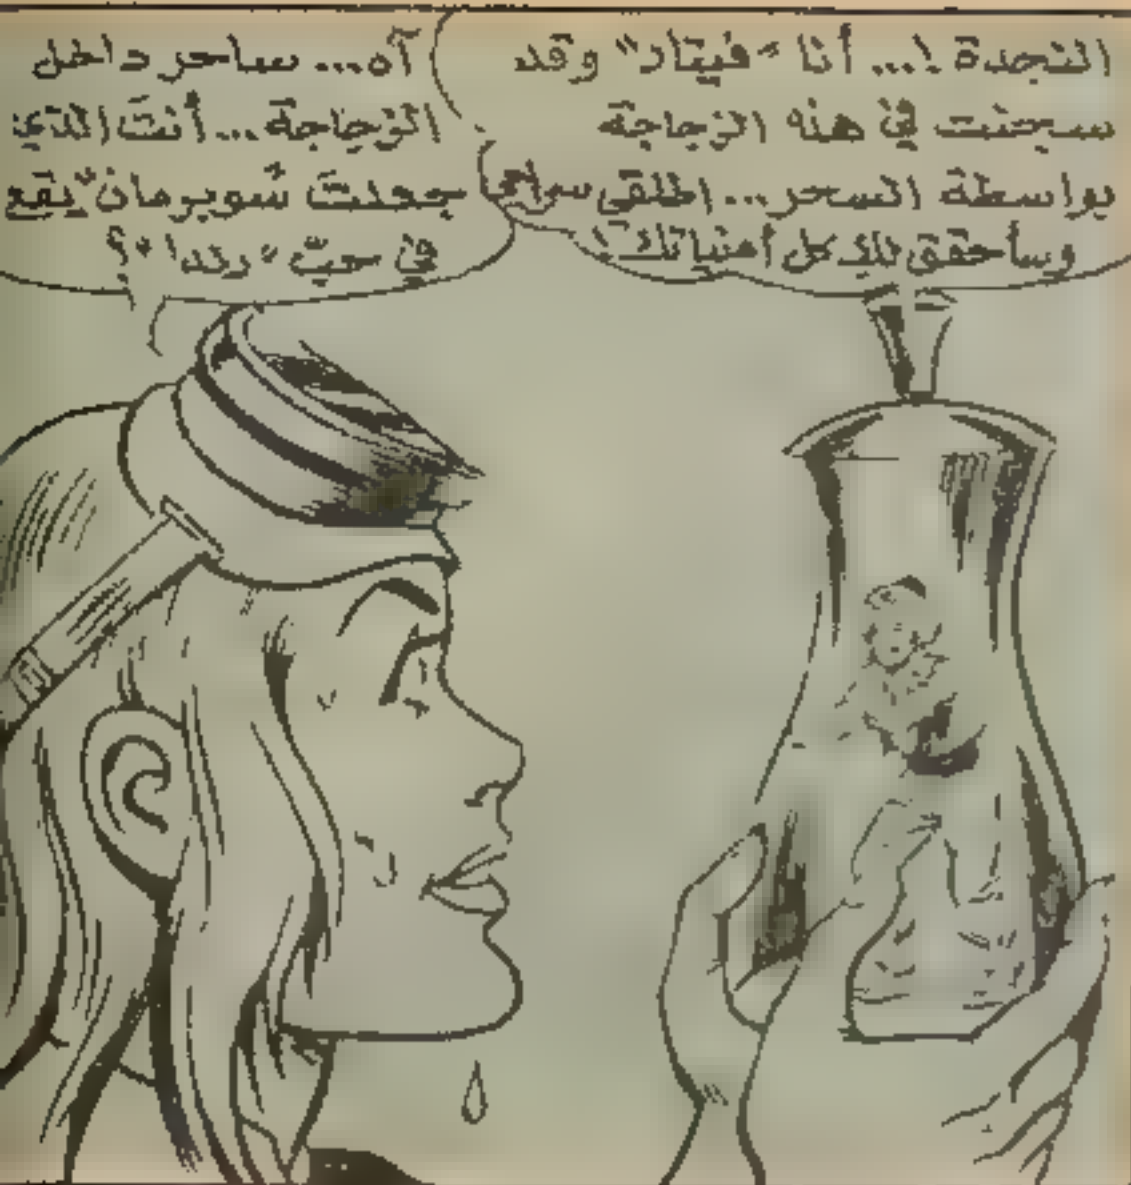 النجدة!... أنا "فيتار" وقد
سجنت في هذه الزجاجة
بواسطة السحر... اطلقي سراحي
وسأحقق لكِ كل أمنياتك!
آه... ساحر داخل
الزجاجة... أنتَ الذي
جعلتَ سوبرمان" يقع
في حبّ "رندا"؟